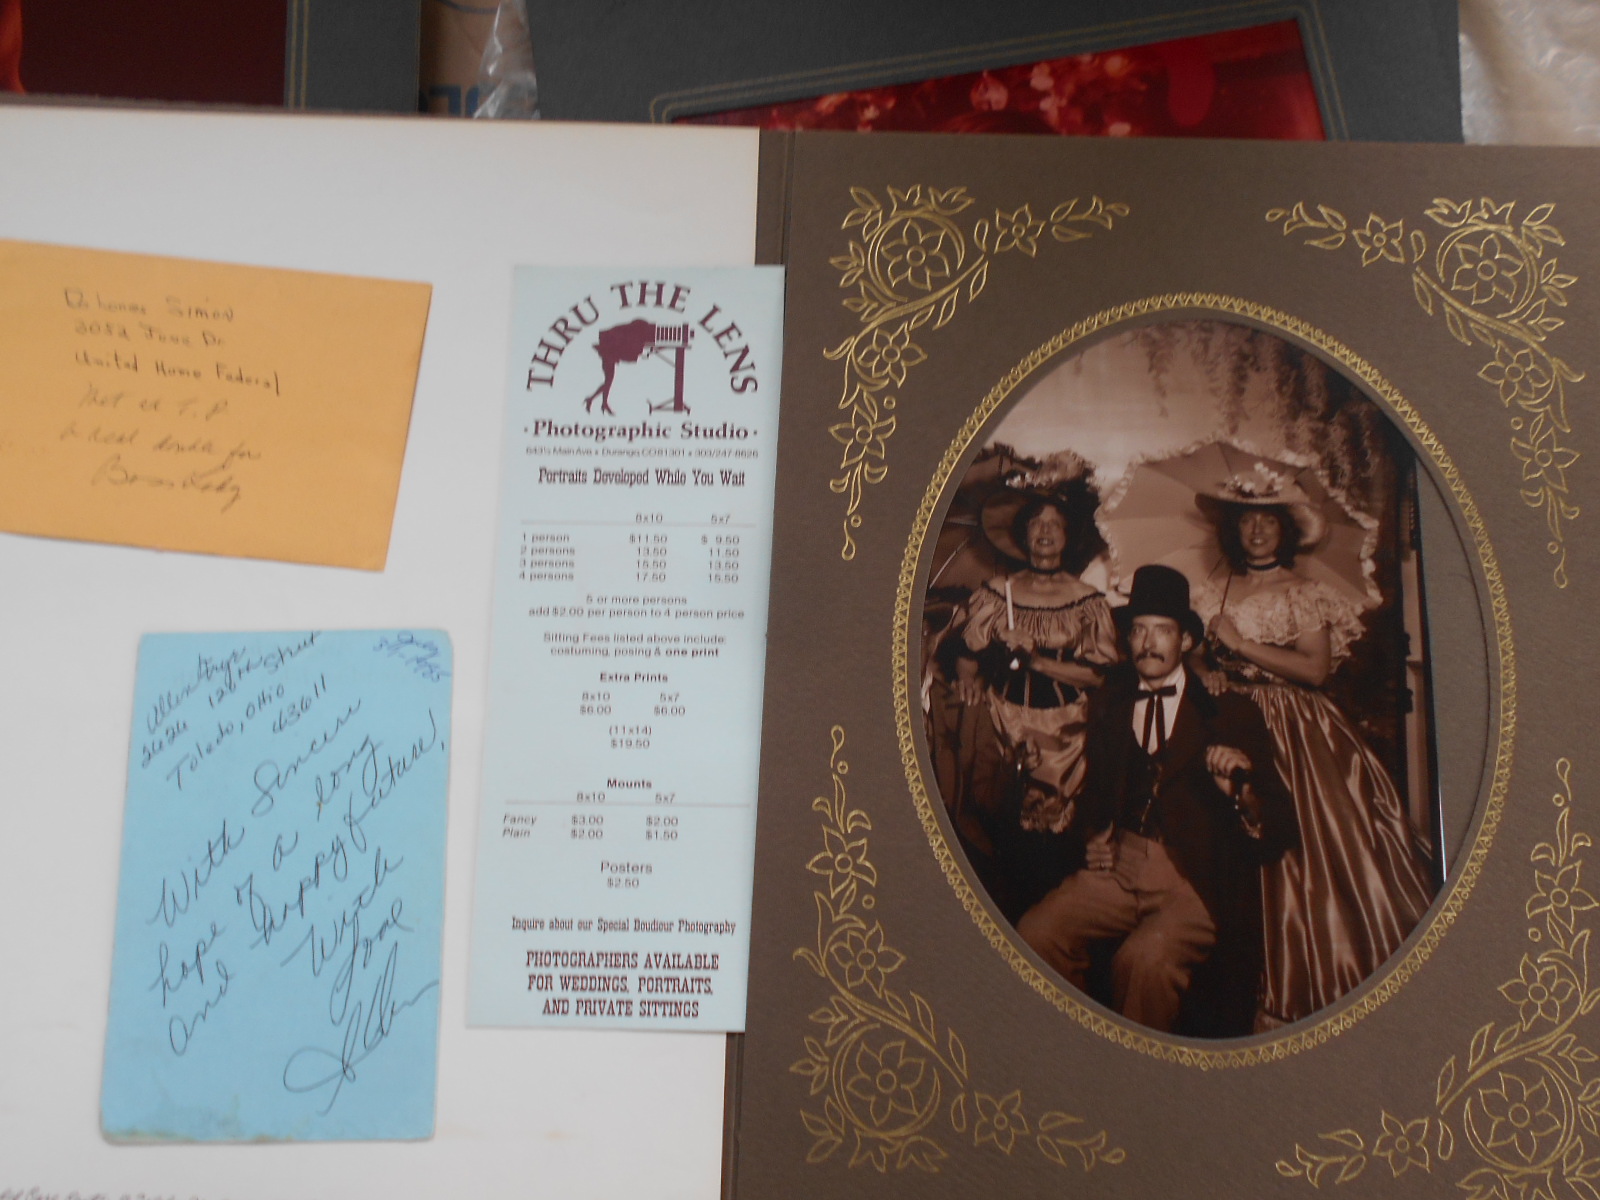 Simon
3082 Dr
United Home Federal
Met at T.P.
a real double for
THRU THE LENS
· Photographic Studio ·
643½ Main Ave • Durango, CO 81301 • 303/247-8626
Portraits Developed While You Wait
8x10 5x7
1 person $11.50 $ 9.50
2 persons 13.50 11.50
3 persons 15.50 13.50
4 persons 17.50 15.50
5 or more persons
add $2.00 per person to 4 person price
Sitting Fees listed above include:
costuming, posing & one print
Extra Prints
8x10 5x7
$6.00 $6.00
(11x14)
$19.50
Mounts
8x10 5x7
Fancy $3.00 $2.00
Plain $2.00 $1.50
Posters
$2.50
Inquire about our Special Boudiour Photography
PHOTOGRAPHERS AVAILABLE
FOR WEDDINGS, PORTRAITS,
AND PRIVATE SITTINGS
Allen
2626 126th Street
Toledo, Ohio
43611
With Sincere
hope of a long
and happy future,
With
Love